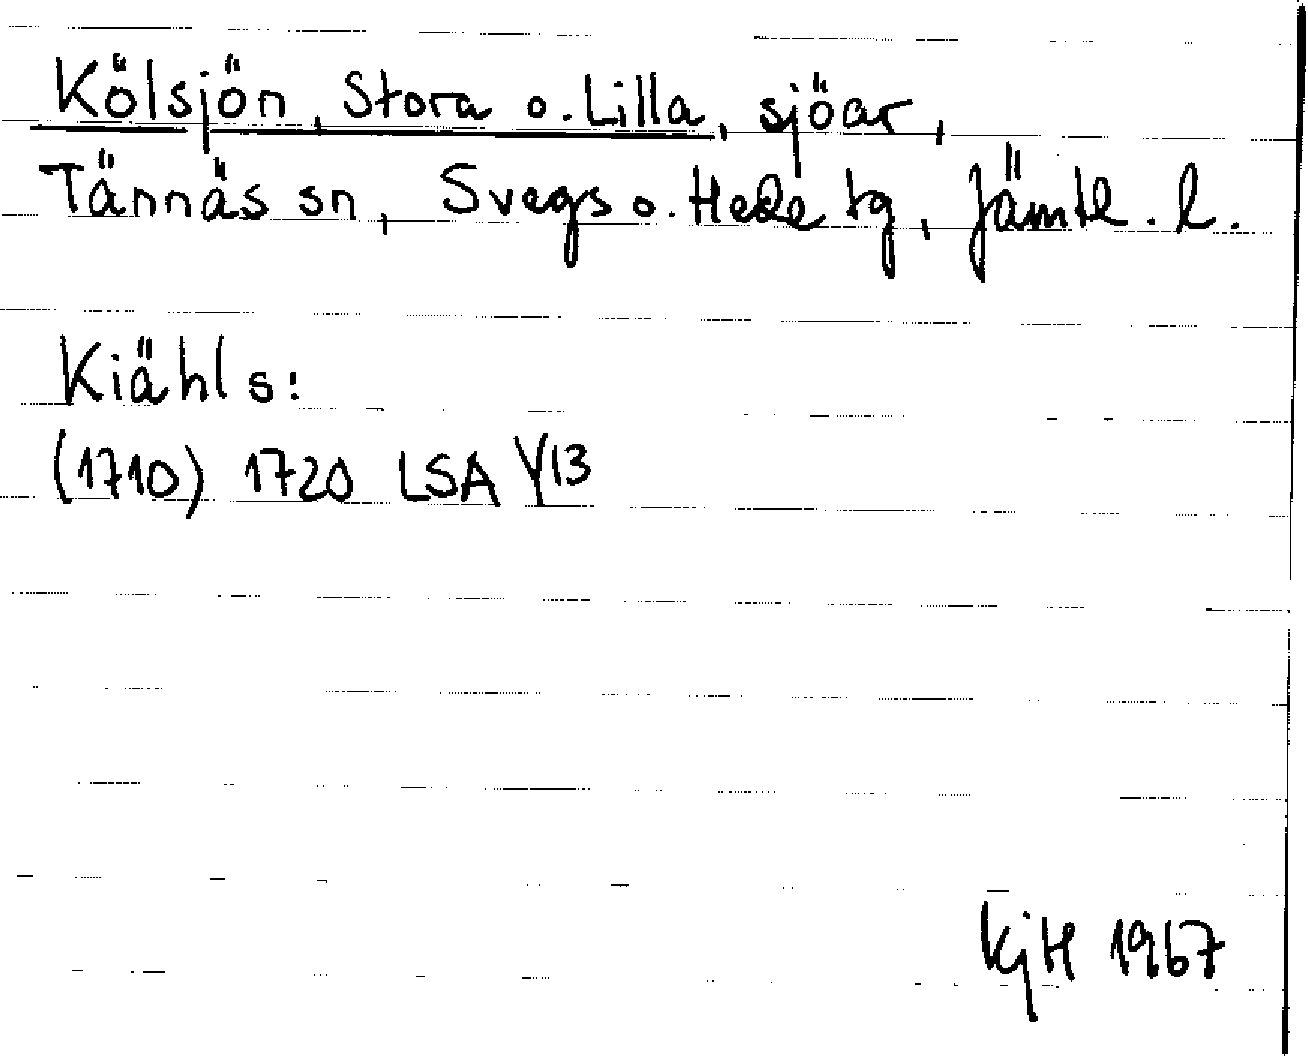 Kölsjön, Stora o. Lilla, sjöar,
Tännäs sn, Svegs o. Hede tg, Jämtl. l.
Kiähls:
(1710) 1720 LSA Y13
KjH 1967